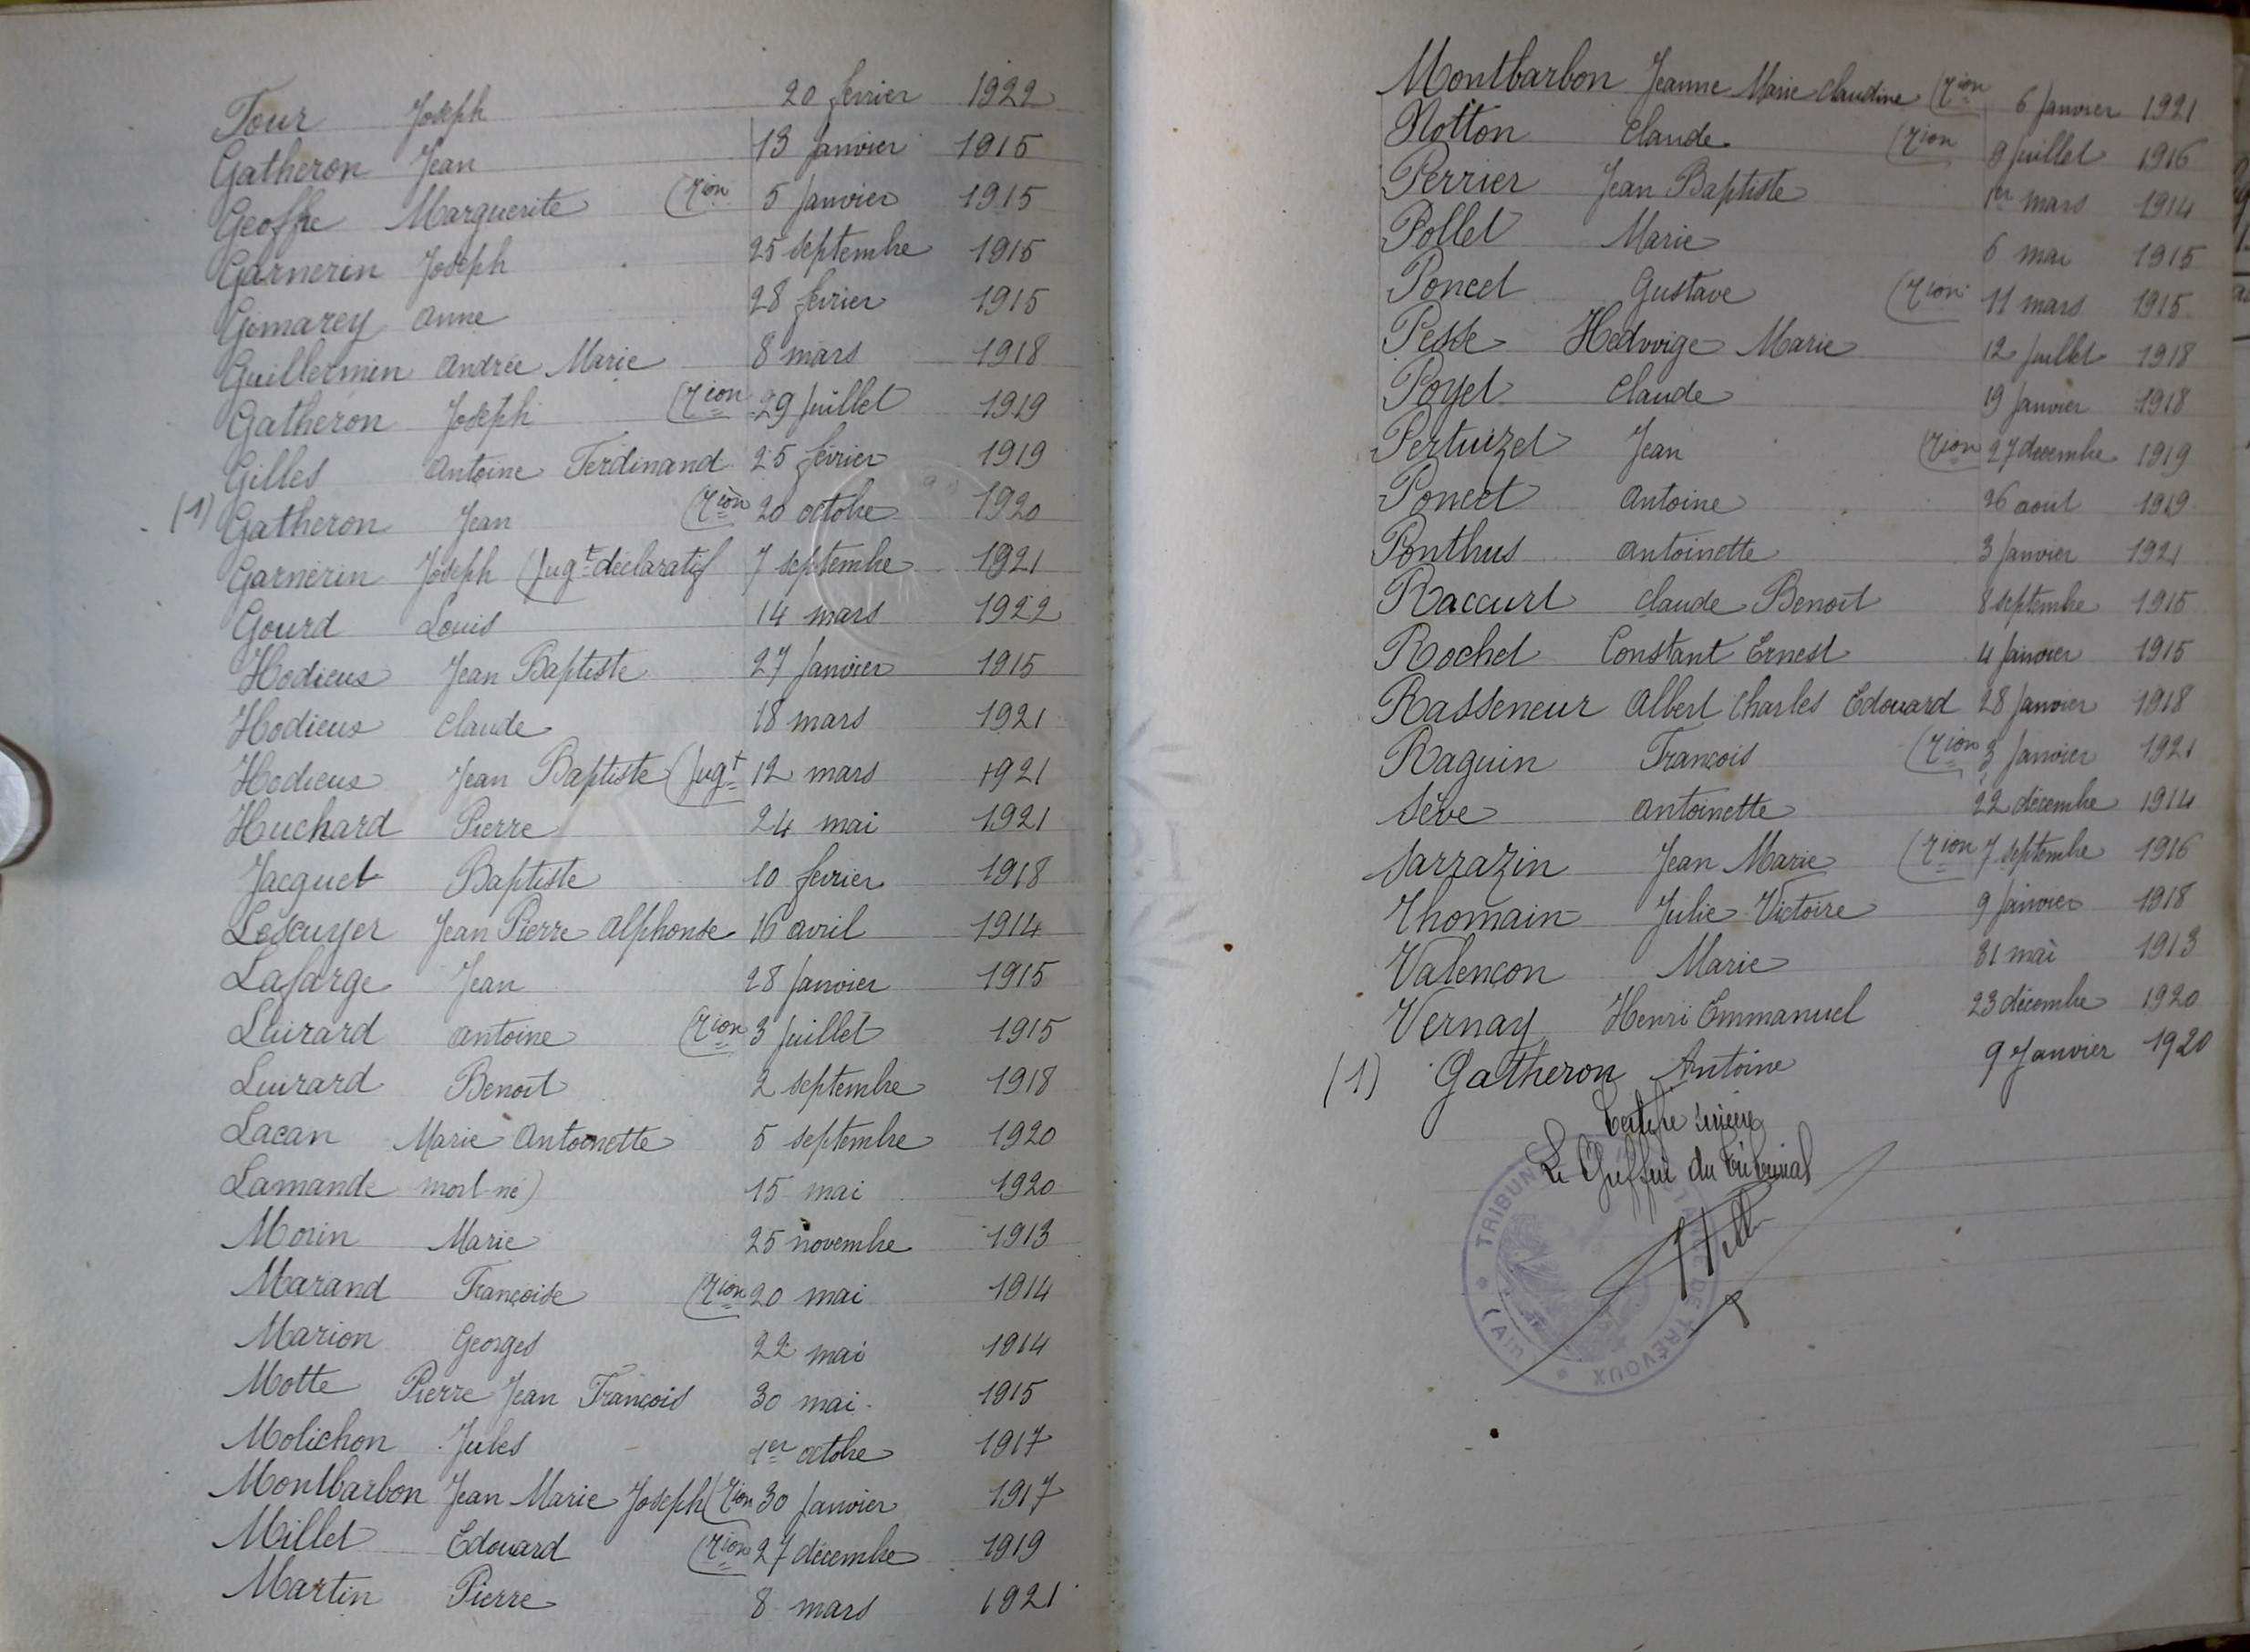 Tour Joseph 20 fevrier 1922
Gatheron Jean 13 Janvier 1915
Geoffre Marguerite (Tion 5 Janvier 1915
Garnerin Joseph 25 septembre 1915
Gimarey Anne 28 fevrier 1915
Guillermin Andrée Marie 8 mars 1918
Gatheron Joseph (Tion 29 Juillet 1919
Gilles Antoine Ferdinand 25 fevrier 1919
(1) Gatheron Jean (Tion 20 octobre 1920
Garnerin Joseph (Jugt déclaratif 7 septembre 1921
Gourd Louis 14 mars 1922
Hodieux Jean Baptiste 27 Janvier 1915
Hodieux Claude 18 mars 1921
Hodieux Jean Baptiste (Jugt 12 mars 1921
Huchard Pierre 24 mai 1921
Jacquet Baptiste 10 fevrier 1918
Lescuyer Jean Pierre Alphonse 16 avril 1914
Lafarge Jean 28 Janvier 1915
Luirard Antoine (Tion 3 Juillet 1915
Luirard Benoit 2 septembre 1918
Lacan Marie Antoinette 5 septembre 1920
Lamande mort-né) 15 mai 1920
Morin Marie 25 novembre 1913
Marand Françoise (Tion 20 mai 1914
Marion Georges 22 mai 1914
Motte Pierre Jean François 30 mai 1915
Molichon Jules 1er octobre 1917
Montbarbon Jean Marie Joseph (Tion 30 Janvier 1917
Millet Edouard (Tion 27 décembre 1919
Martin Pierre 8 mars 1921
Montbarbon Jeanne Marie Claudine (Tion 6 Janvier 1921
Notton Claude (Tion 9 Juillet 1916
Perrier Jean Baptiste 1er mars 1914
Pollet Marie 6 mai 1915
Poncet Gustave (Tion 11 mars 1915
Pesse Hedwige Marie 12 Juillet 1918
Poyet Claude 19 Janvier 1918
Pertuizet Jean (Tion 27 decembre 1919
Poncet Antoine 26 aout 1919
Ponthus Antoinette 3 Janvier 1921
Raccurt Claude Benoit 8 septembre 1915
Rochet Constant Ernest 4 Janvier 1915
Rasseneur Albert Charles Edouard 28 Janvier 1918
Raguin François (Tion 3 Janvier 1921
Sève Antoinette 22 décembre 1914
Sarrazin Jean Marie (Tion 7 septembre 1916
Thomain Julie Victoire 9 Janvier 1918
Valençon Marie 31 mai 1913
Vernay Henri Emmanuel 23 décembre 1920
(1) Gatheron Antoine 9 Janvier 1920
Certifié sincère
Le Greffier du Tribunal
TRIBUNAL DE TRÉVOUX (AIN)